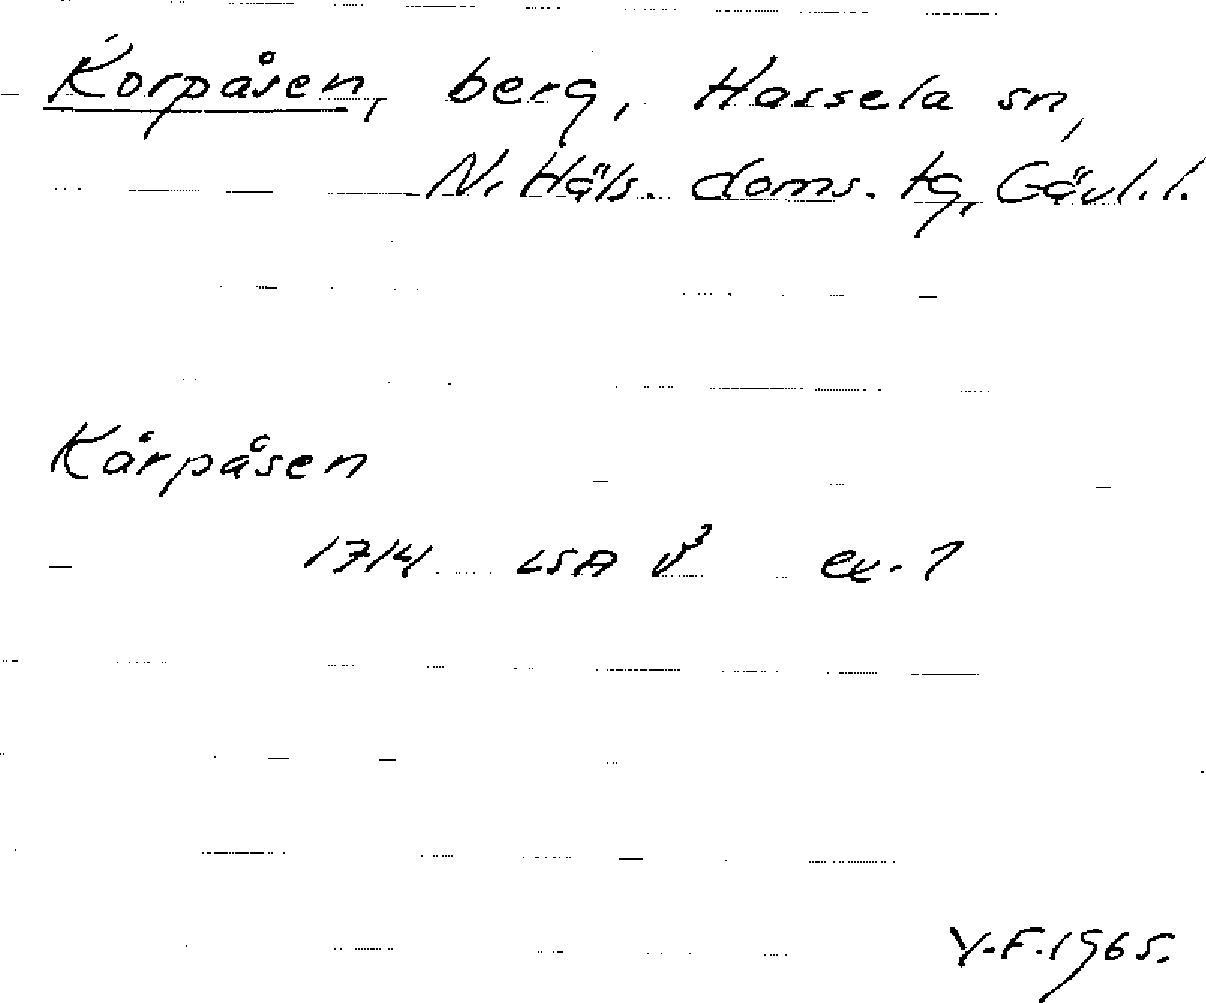 Korpåsen, berg, Hassela sn,
N. Häls. doms. tg, Gävl. l.
Kårpåsen
1714 LSA
Y.F. 1965.